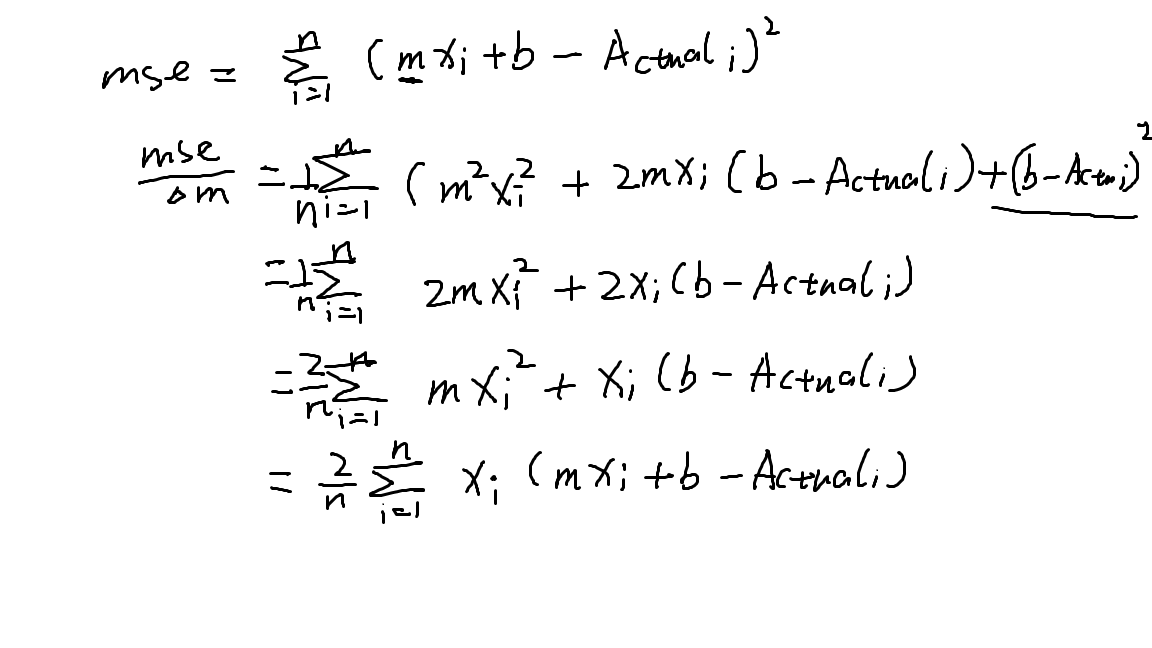 mse = Σ_{i=1}^{n} (mx_i + b − Actual_i)²
mse/△m = 1/n Σ_{i=1}^{n} (m²x_i² + 2mx_i (b − Actual_i) + (b − Act_i)²
= 1/n Σ_{i=1}^{n} 2mx_i² + 2x_i (b − Actual_i)
= 2/n Σ_{i=1}^{n} mx_i² + x_i (b − Actual_i)
= 2/n Σ_{i=1}^{n} x_i (mx_i + b − Actual_i)